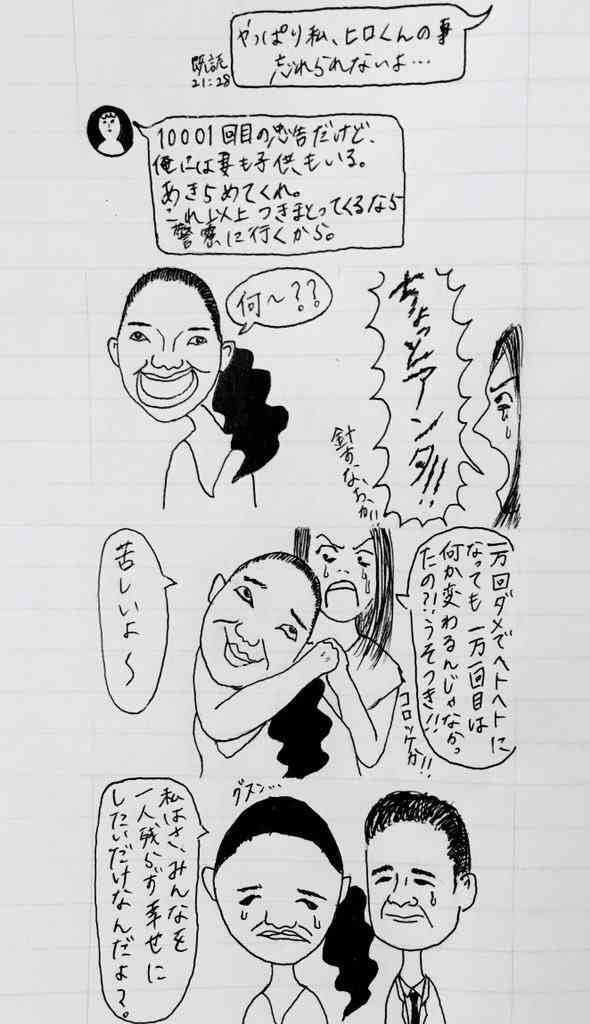 やっぱり私、ヒロくんの事
忘れられないよ…
既読
21:28
10001回目の忠告だけど、
俺には妻も子供もいる。
あきらめてくれ。
これ以上つきまとってくるなら
警察に行くから。
何〜??
ちょっとアンタ!!
苦しいよ〜
一万回ダメでヘトヘトに
なっても一万一回目は
何か変わるんじゃなかっ
たの?!うそつき!!
コロッケか!!
グスン…
私はさ、みんなを
一人残らず幸せに
したいだけなんだよ?。